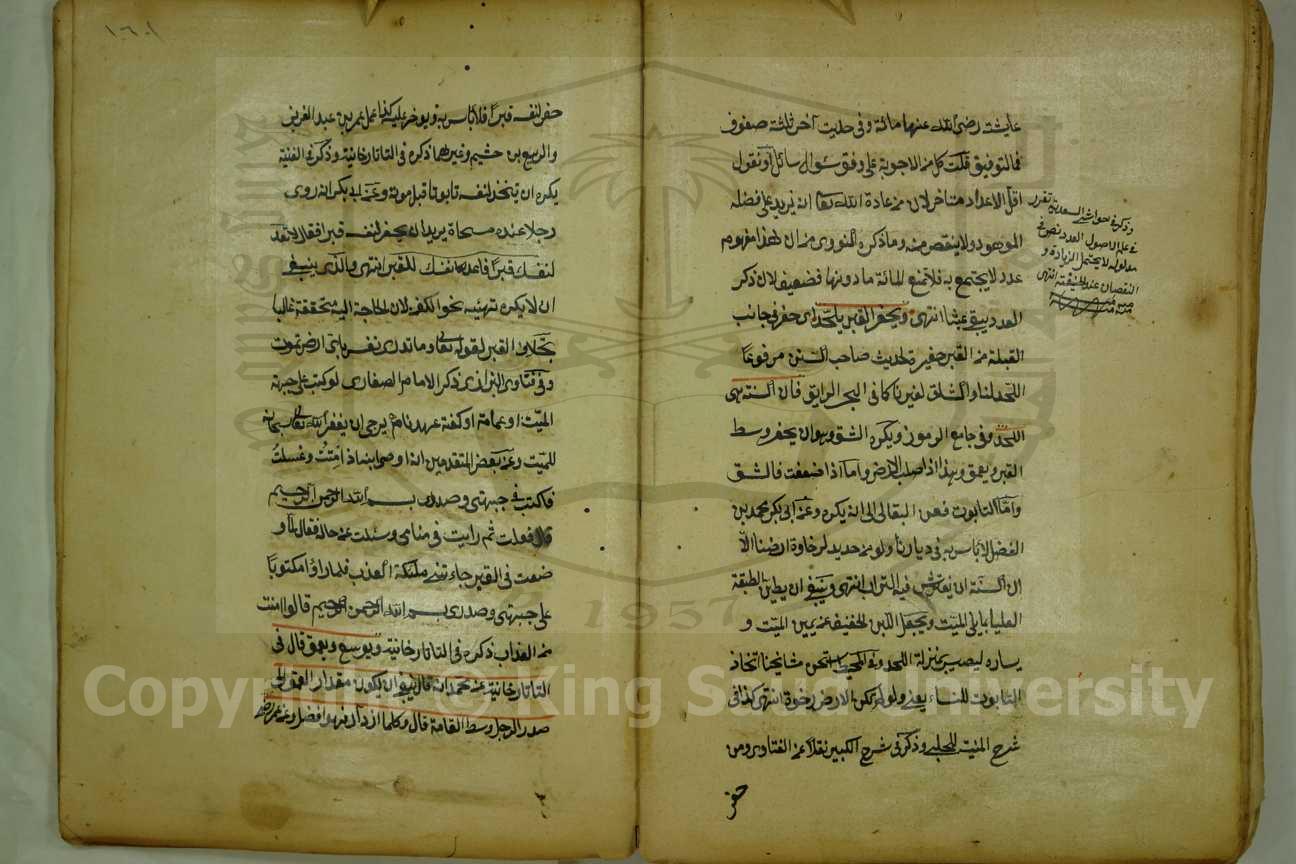 عايشة رضي الله عنها مائة وفي حديث آخر ثلثة صفوف
فما التوفيق قلت كل من الاجوبة على وفق سؤال سائل او نقول
اقل الاعداد متاخر لان من عادة الله تعا انه يزيد على فضله
الموهود ولا ينقص منه وما ذكره النووي من ان هذا مفهوم
عدد لا يجتمع به فلا تمنع المائة ما دونها فضعيف لان ذكر
العدد يبقى عبثا انتهى ويحفر القبر يلحد اي حفر في جانب
القبلة من القبر حفيرة لحديث صاحب السنن مرفوعا
اللحد لنا والشق لغيرنا كما في البحر الرايق قال السنة هي
اللحد وفي جامع الرموز ويكره الشق وهو ان يحفر وسط
القبر ويعمق وهذا اذا صلب الارض واما اذا ضعفت فالشق
واما التابوت فعن البقالي انه يكره وعن ابي بكر محمد بن
الفضل لا باس به في ديارنا ولو من حديد لرخاوة ارضنا الا
ان السنة ان يفترش فيه التراب انتهى وينبغي ان يطين الطبقة
العليا مما يلي الميت ويجعل اللبن الخفيف عن يمين الميت و
يساره ليصير بمنزلة اللحد وفي المحيط استحسن مشايخنا اتخاذ
التابوت للنساء يعني ولو لم تكن الارض رخوة انتهى كذا في
شرح المنية للحلبي وذكر في شرح الكبير نقلا عن الفتاوى ومن
حفر
وذكر في حواشي السعدية تقرر
في علم الاصول العدد نص في
مدلوله لا يحتمل الزيادة و
النقصان عند الحنيفة انتهى
١٠٦
حفر لنفسه قبرا فلا باس به ويوجر عليه كذا عمل عمر بن عبد العزيز
والربيع بن خثيم وغيرهما ذكره في التاتارخانية وذكر في القنية
يكره ان يتخذ لنفسه تابوتا قبل موته وعن ابي بكر انه روى
رجلا عنده مسحاة يريد ان يحفر لنفسه قبرا فقال لا تعد
لنفسك قبرا فاعد نفسك للقبر انتهى والذي ينبغي
ان لا يكره تهيئته نحو الكفن لان الحاجة اليه متحققة غالبا
بخلاف القبر لقوله تعالى وما تدري نفس باي ارض تموت
وفي فتاوى البزازي ذكر الامام الصفاري لو كتب على جبهة
الميت او عمامة او كفنه عهد نامه يرجى ان يغفر الله تعالى سبحانه
للميت وعن بعض المتقدمين انه اوصى ابنه اذا مت وغسلت
فاكتب في جبهتي وصدري بسم الله الرحمن الرحيم
قال ففعلت ثم رايت في منامي وسئلت عن حاله فقال لما و
ضعت في القبر جاءتني ملئكة العذب فلما راؤ مكتوبا
على جبهتي وصدري بسم الله الرحمن الرحيم قالوا امنت
من العذاب ذكره في التاتارخانية ويوسع ويعمق قال في
التاتارخانية عن محمد انه قال ينبغي ان يكون مقدار العمق الى
صدر الرجل وسط القامة قال وكلما ازداد فهو افضل وعن عمر رضي
Copyright © King Saud University
1957